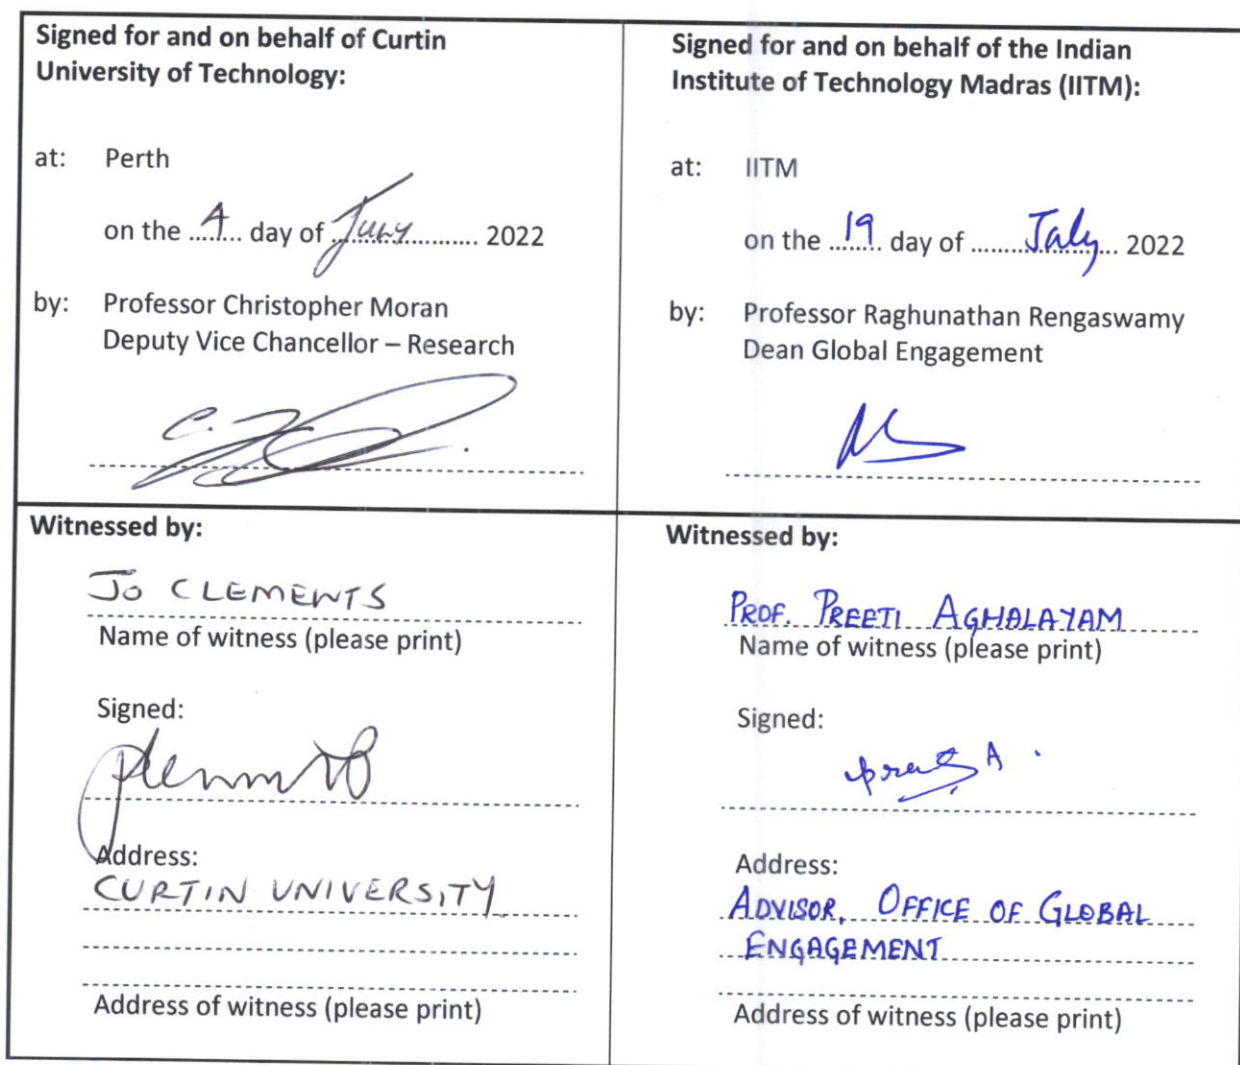 Signed for and on behalf of Curtin
University of Technology:
at: Perth
on the 4 day of July 2022
by: Professor Christopher Moran
Deputy Vice Chancellor – Research
Witnessed by:
JO CLEMENTS
Name of witness (please print)
Signed:
Address:
CURTIN UNIVERSITY
Address of witness (please print)
Signed for and on behalf of the Indian
Institute of Technology Madras (IITM):
at: IITM
on the 19 day of July 2022
by: Professor Raghunathan Rengaswamy
Dean Global Engagement
Witnessed by:
PROF. PREETI AGHALAYAM
Name of witness (please print)
Signed:
Address:
ADVISOR, OFFICE OF GLOBAL
ENGAGEMENT
Address of witness (please print)